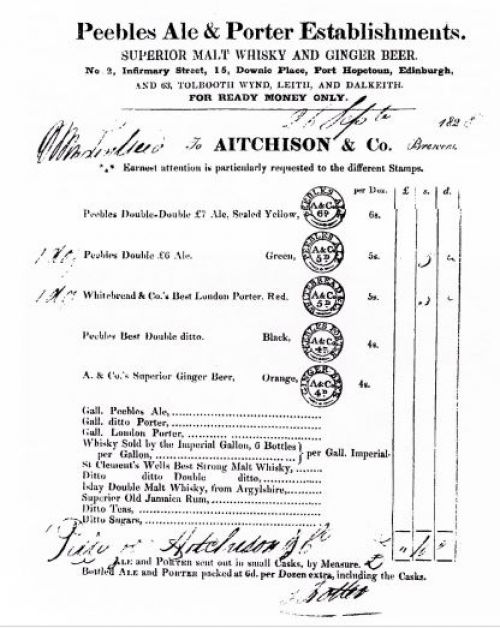 Peebles Ale & Porter Establishments.
SUPERIOR MALT WHISKY AND GINGER BEER.
No 2, Infirmary Street, 15, Downie Place, Port Hopetoun, Edinburgh,
AND 63, TOLBOOTH WYND, LEITH, AND DALKEITH.
FOR READY MONEY ONLY.
Septr 182
To AITCHISON & Co. Brewers
*** Earnest attention is particularly requested to the different Stamps.
per Doz. £ s. d.
Peebles Double-Double £7 Ale, Sealed Yellow, PEEBLES ALE A&Co. 6D 6s.
Peebles Double £6 Ale. Green, PEEBLES ALE A&Co. 5D 5s.
Whitebread & Co.'s Best London Porter, Red. A&Co. 5D 5s.
Peebles Best Double ditto. Black, PEEBLES PORTER A&Co. 4D 4s.
A. & Co.'s Superior Ginger Beer, Orange, GINGER BEER A&Co. 4D 4s.
Gall. Peebles Ale,
Gall. ditto Porter,
Gall. London Porter,
Whisky Sold by the Imperial Gallon, 6 Bottles
per Gallon, } per Gall. Imperial
St Clement's Wells Best Strong Malt Whisky,
Ditto ditto Double ditto,
Islay Double Malt Whisky, from Argylshire,
Superior Old Jamaica Rum,
Ditto Teas,
Ditto Sugars,
Aitchison & Co £
ALE and PORTER sent out in small Casks, by Measure.
Bottled ALE and PORTER packed at 6d. per Dozen extra, including the Casks.